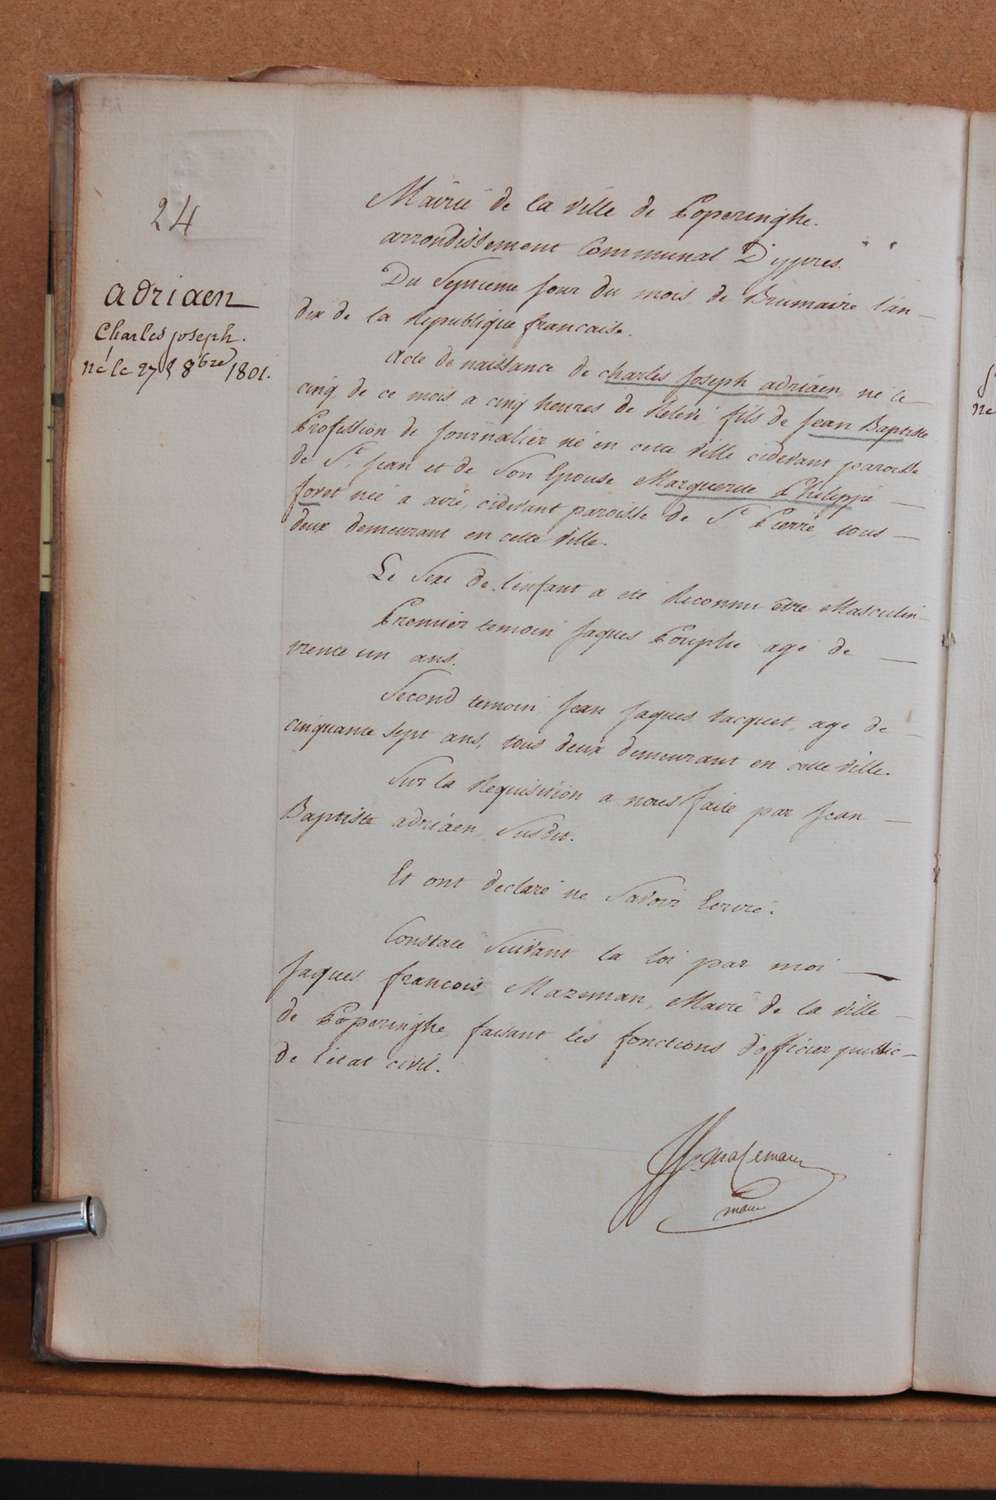 24
Adriaen
Charles joseph.
né le 27 8bre 1801.
Mairie de la ville de Poperinghe.
arrondissement Communal D'ypres.
Du Septieme jour du mois de Brumaire l'an
dix de la Republique francaise.
Acte de naissance de charles Joseph adriaen, né le
cinq de ce mois a cinq heures de Relevé, fils de Jean Baptiste
Profession de Journalier né en cette ville cidevant paroisse
de St. Jean et de Son Epouse Marguerite Philippe
foret née a, cidevant paroisse de St. Pierre, tous
deux demeurant en cette ville.
Le Sexe de l'enfant a eté Reconnu être Masculin
Premier temoin Jaques agé de
trente un ans.
Second temoin Jean Jaques tacquet, agé de
cinquante Sept ans, tous deux demeurant en cette ville.
Sur la Requisition a nous faite par Jean
Baptiste adriaen Susdit.
Et ont declaré ne Savoir Ecrire.
Constaté Suivant la loi par moi
Jaques francois Mazeman, Maire de la ville
de Poperinghe, faisant les fonctions d'officier public
de l'etat civil.
maire
né